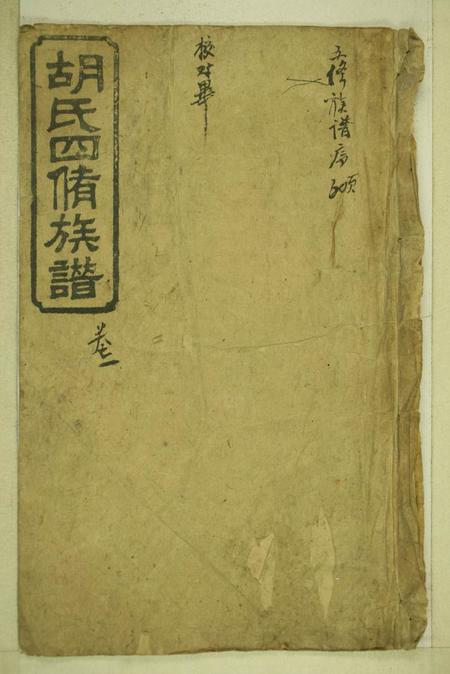 五修族谱序
校对畢
胡氏四脩族譜
卷一